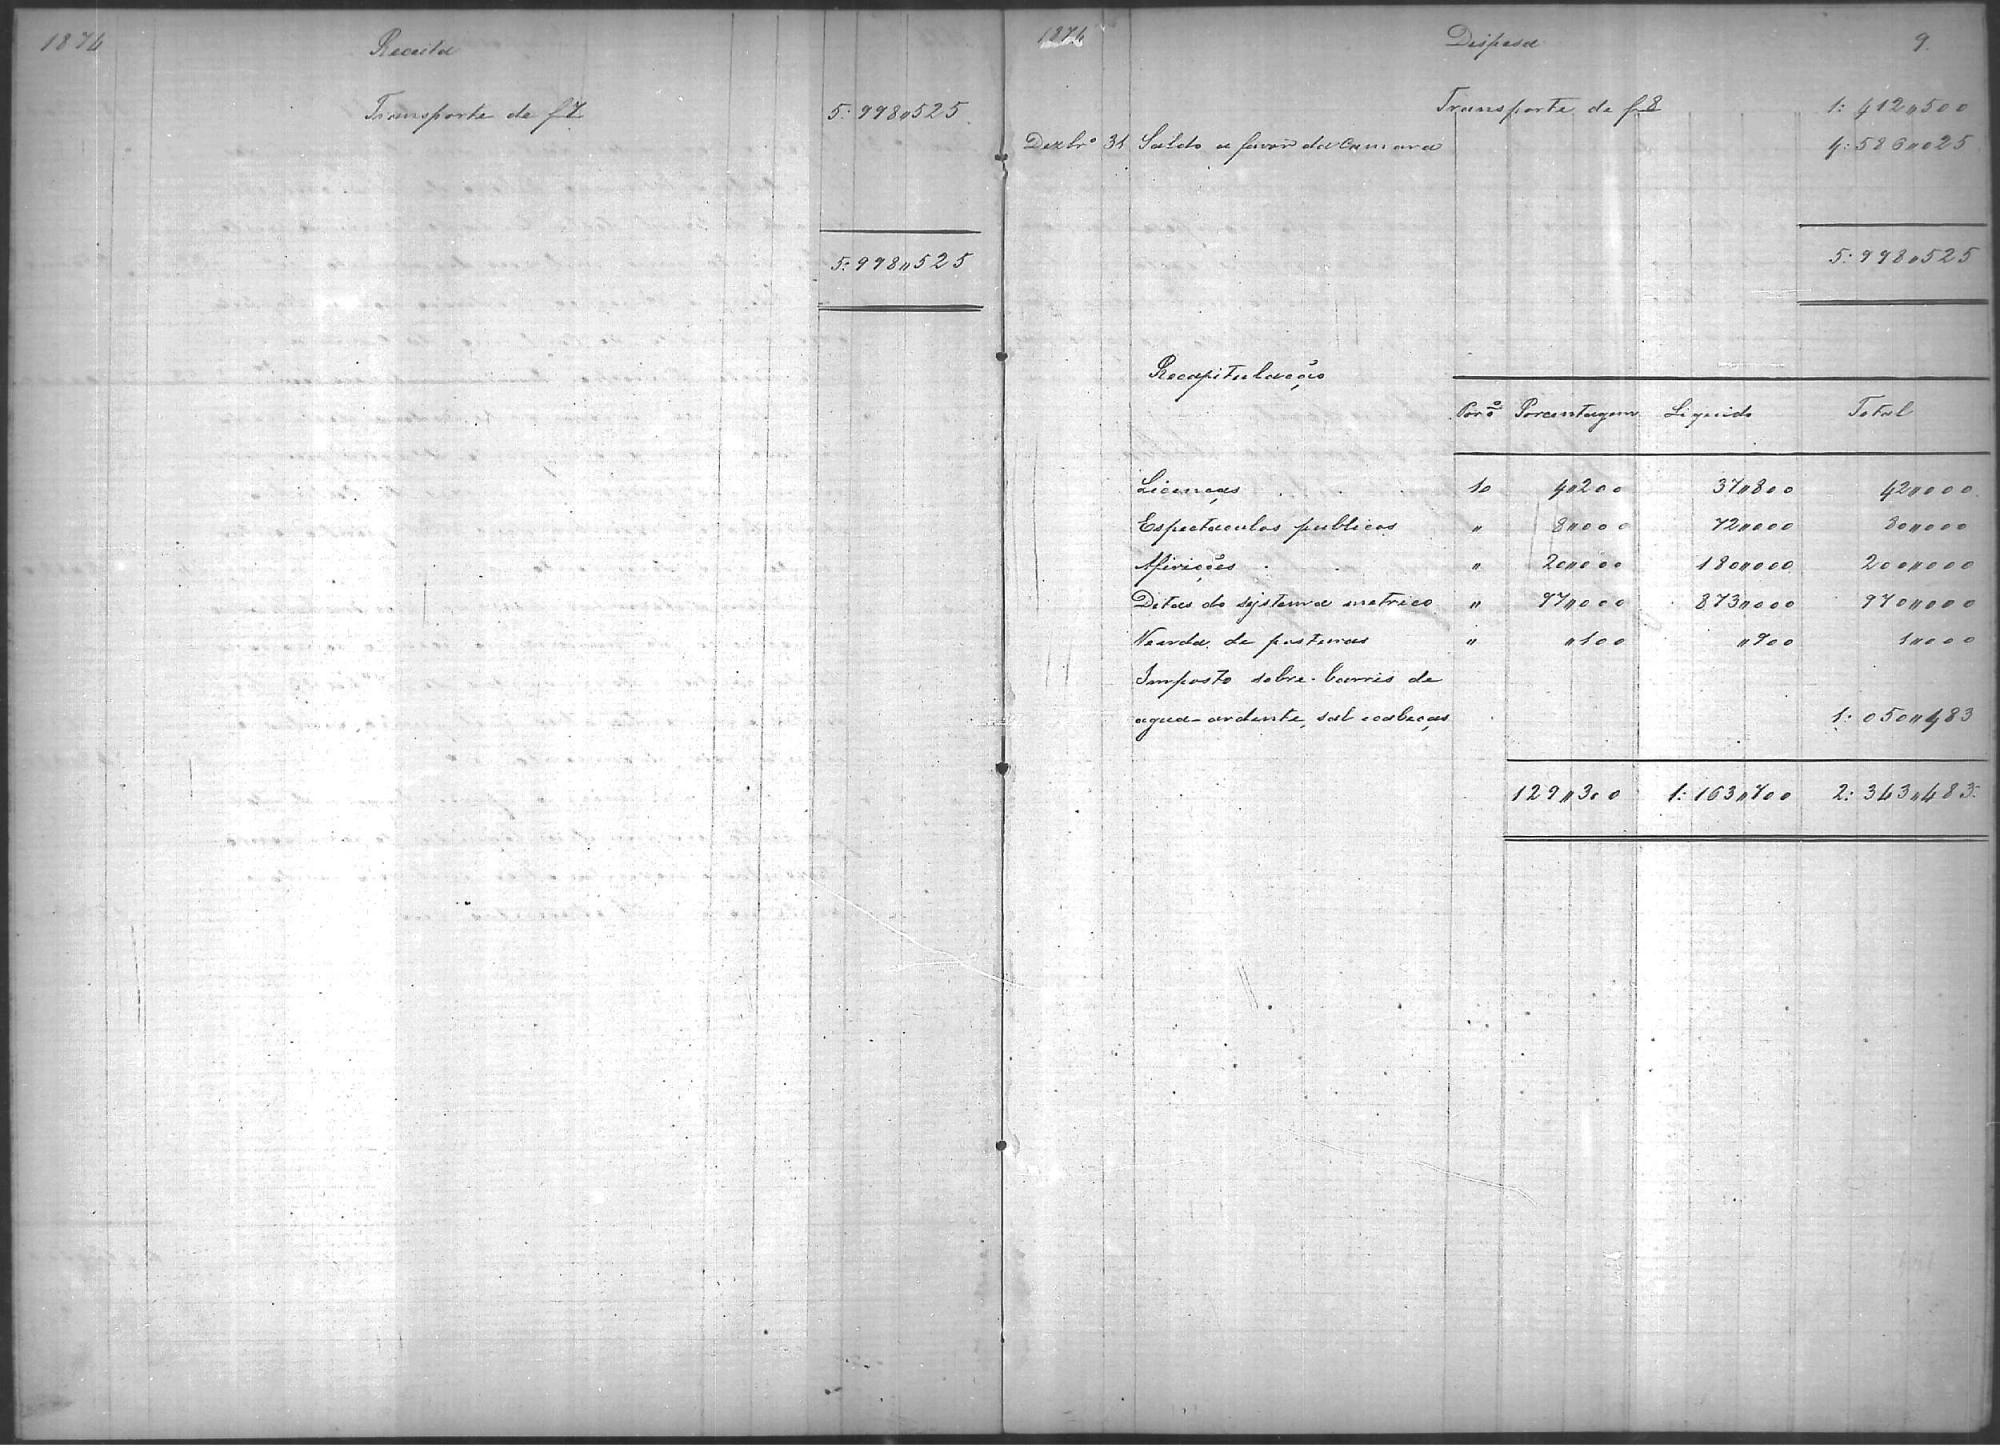 1874
Receita
Transporte de f 7
5:998„525
5:998„525
1874
Despesa
9
Transporte de f 8
1:412„500
Dezbrº 31 Saldo a favor da Camara
4:586„025
5:998„525
Recapitulação
Por % Porcentagem Liquido Total
Licenças . . . 10 4„200 37„800 42„000
Espectaculos publicos „ 8„000 72„000 80„000
Afirições . . „ 20„000 180„000 200„000
Ditas do systema metrico „ 97„000 873„000 970„000
Venda de posturas „ „100 „900 1„000
Imposto sobre barris de
agua-ardente, sal e cabeças 1:050„483
129„300 1:163„700 2:343„483